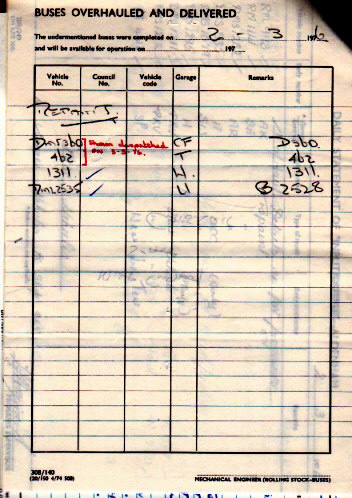 BUSES OVERHAULED AND DELIVERED
The undermentioned buses were completed on 2 - 3 1976
and will be available for operation on 197
Vehicle No. Council No. Vehicle code Garage Remarks
REPAINT
DMS360 Shown despatched CF D360
462 on 3-3-76. T 462
1311 W. 1311.
U B 2528
308/140
(20/150 4/74 508)
MECHANICAL ENGINEER (ROLLING STOCK—BUSES)